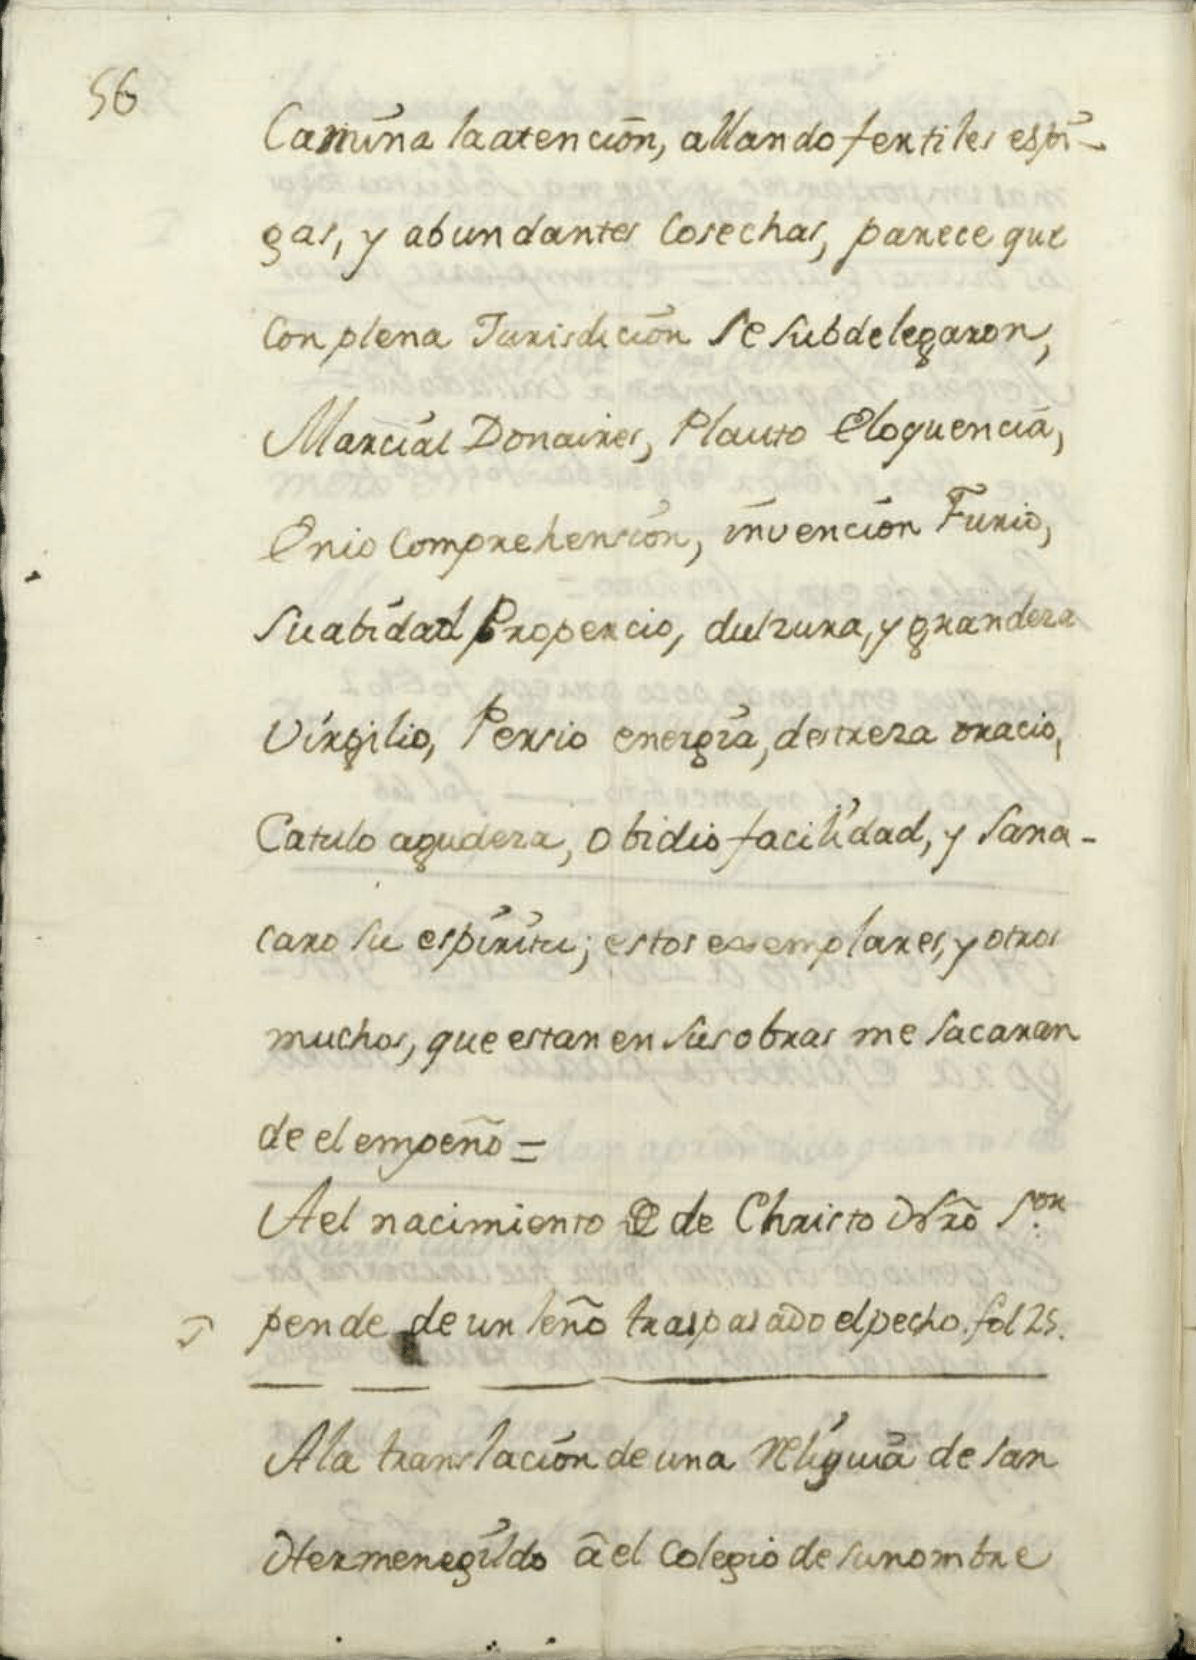 56
Camina la atencion, allando fertiles espi-
gas, y abundantes Cosechas, parece que
Con plena Jurisdicion se subdelegaron,
Marcial Donaires, Plauto Eloquencia,
Enio Comprehension, invencion Furio,
Suabidad Propercio, dulzura, y grandeza
Virgilio, Persio energia, destreza oracio,
Catulo agudeza, Obidio facilidad, y Sana-
caro su espiritu; estos exsemplares, y otros
muchos, que estan en sus obras me sacaran
de el empeño =
A el nacimiento de Christo Nrõ S.or
pende de un leño traspasado el pecho. fol 25.
A la translacion de una Reliquia de San
Hermenegildo â el Colegio de su nombre